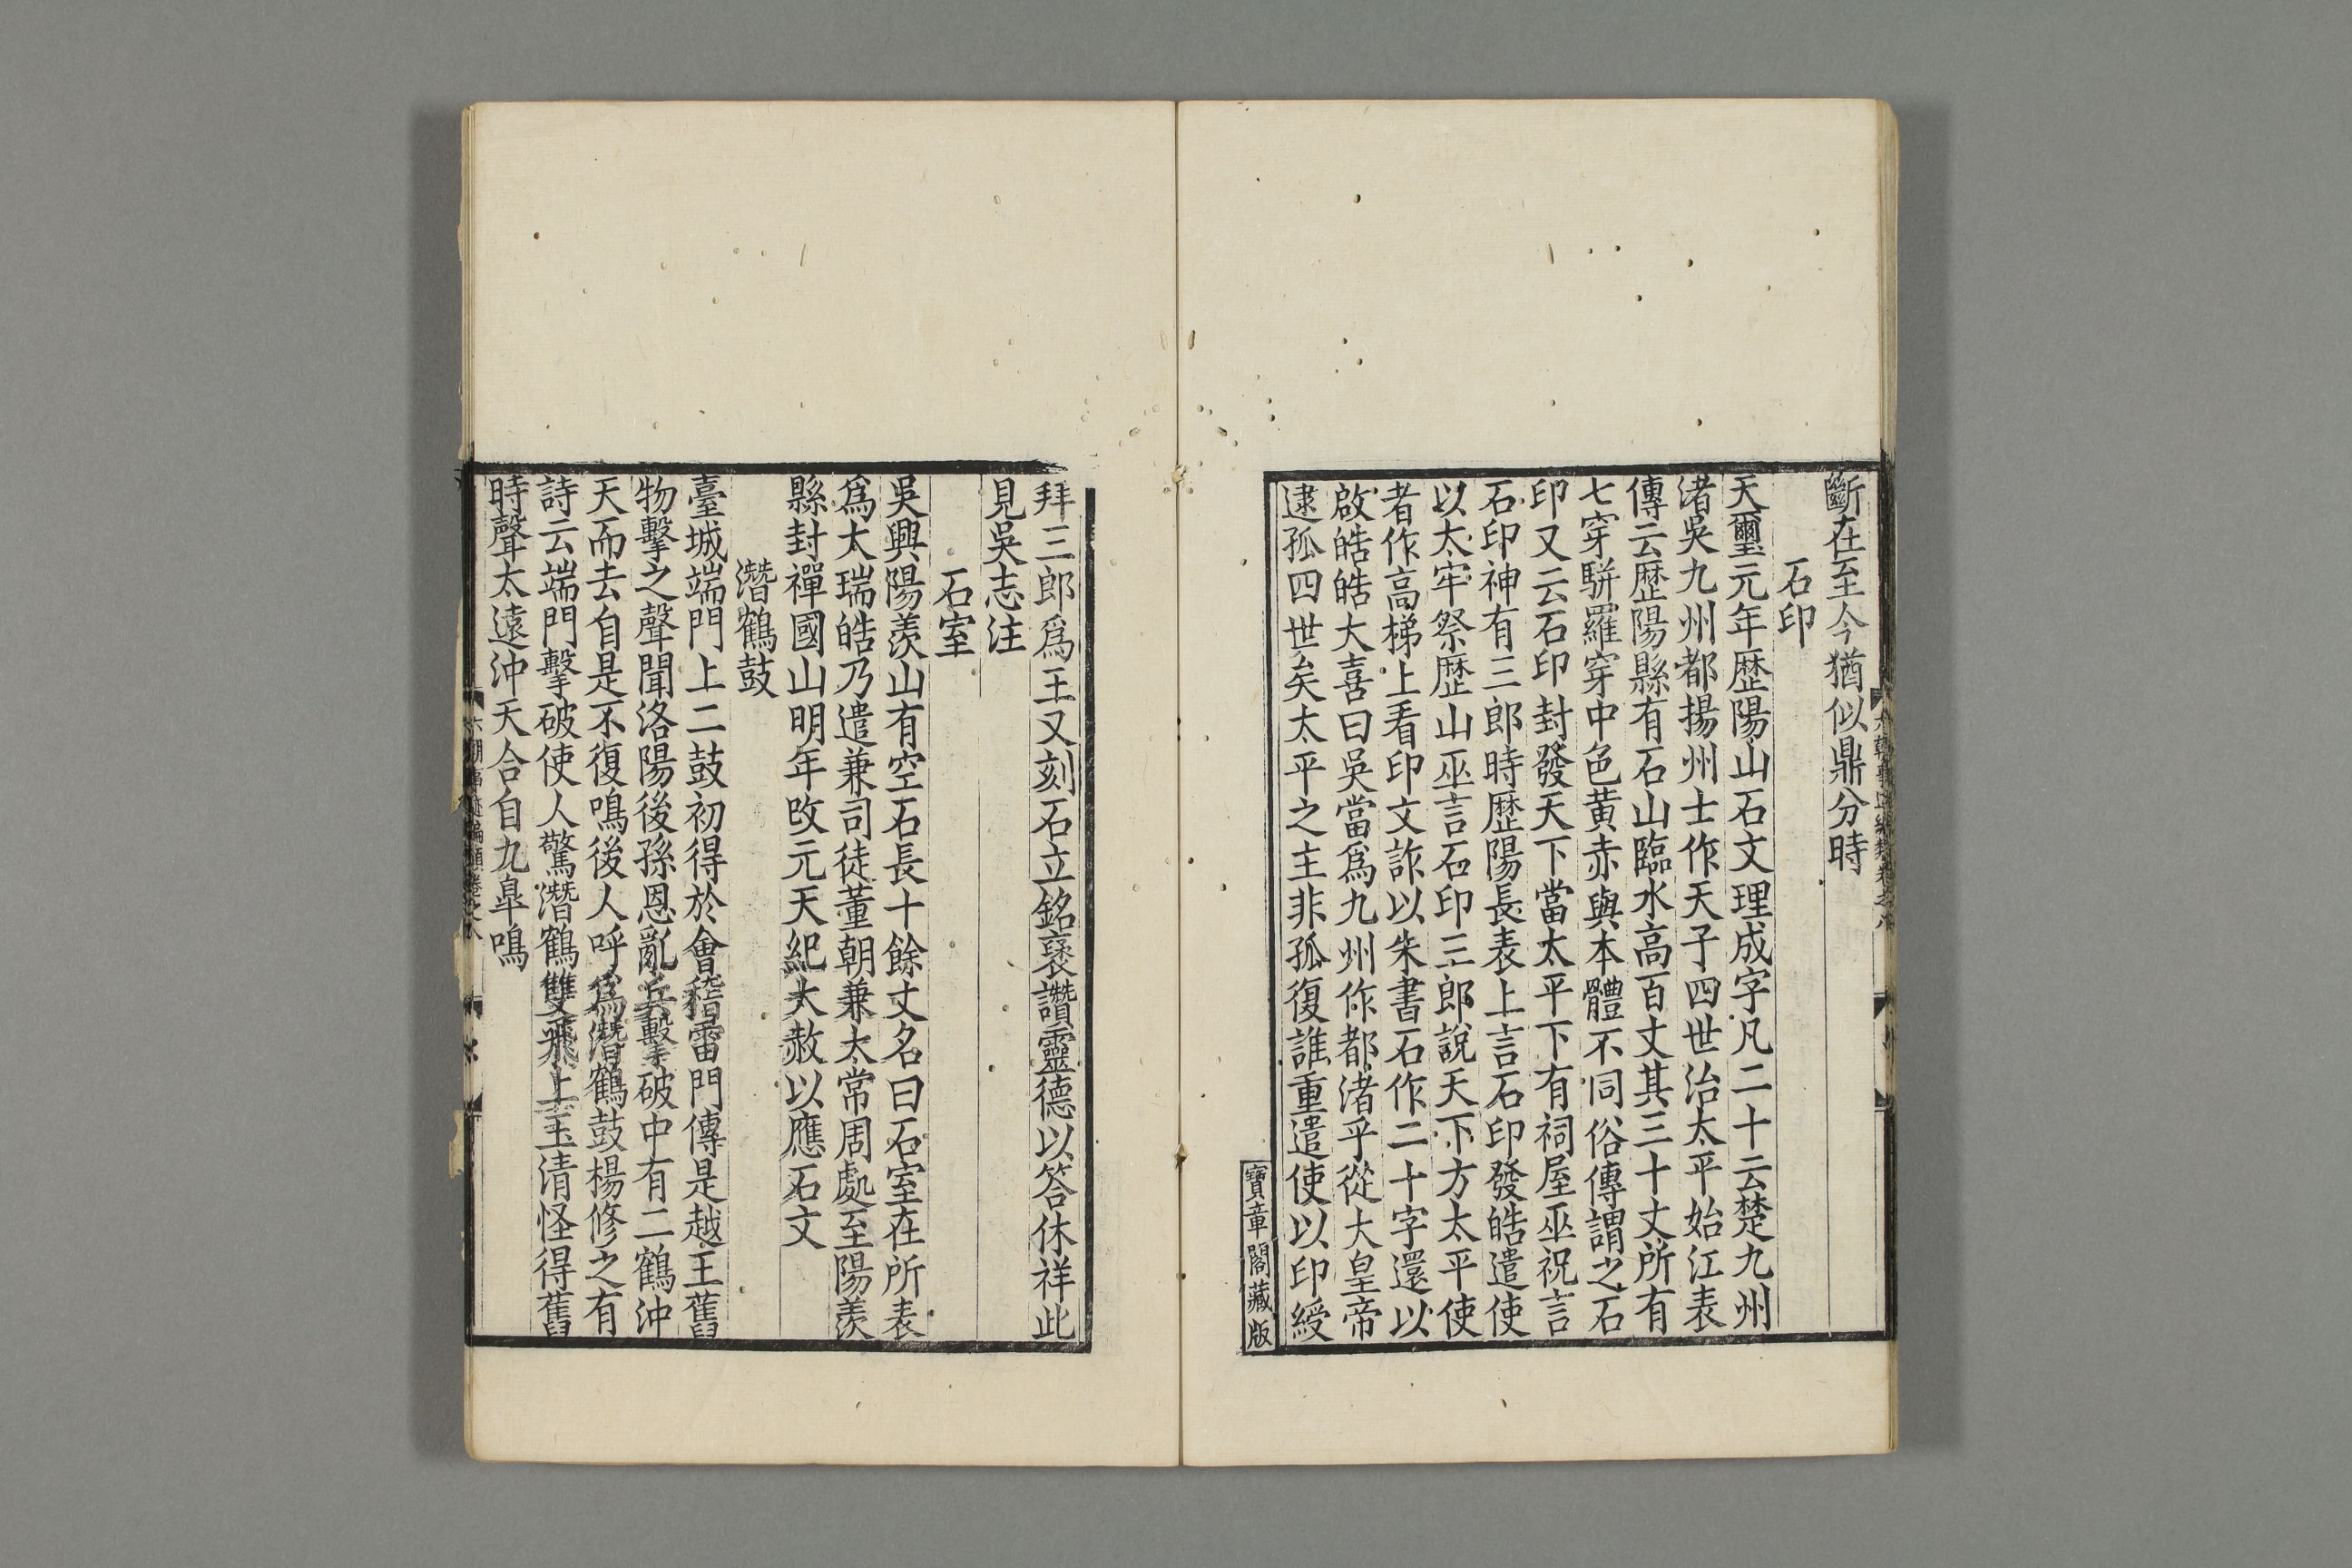 斷在至今猶似鼎分時
石印
天璽元年歴陽山石文理成字凡二十云楚九州
渚吳九州都揚州士作天子四世治太平始江表
傳云歴陽縣有石山臨水高百丈其三十丈所有
七穿駢羅穿中色黄赤與本體不同俗傳謂之石
印又云石印封發天下當太平下有祠屋巫祝言
石印神有三郎時歴陽長表上言石印發皓遣使
以太牢祭歴山巫言石印三郎說天下方太平使
者作高梯上看印文詐以朱書石作二十字還以
啟皓皓大喜曰吳當爲九州作都渚乎從大皇帝
逮孤四世矣太平之主非孤復誰重遣使以印綬
寶章閣藏版
拜三郎爲王又刻石立銘褒讚靈德以答休祥此
見吳志注
石室
吳興陽羨山有空石長十餘丈名曰石室在所表
爲太瑞皓乃遣兼司徒董朝兼太常周處至陽羨
縣封禪國山明年改元天紀大赦以應石文
潛鶴鼓
臺城端門上二鼓初得於會稽雷門傳是越王舊
物擊之聲聞洛陽後孫恩亂兵擊破中有二鶴沖
天而去自是不復鳴後人呼爲潛鶴鼓楊修之有
詩云端門擊破使人驚潛鶴雙飛上玉清怪得舊
時聲太遠沖天合自九臯鳴